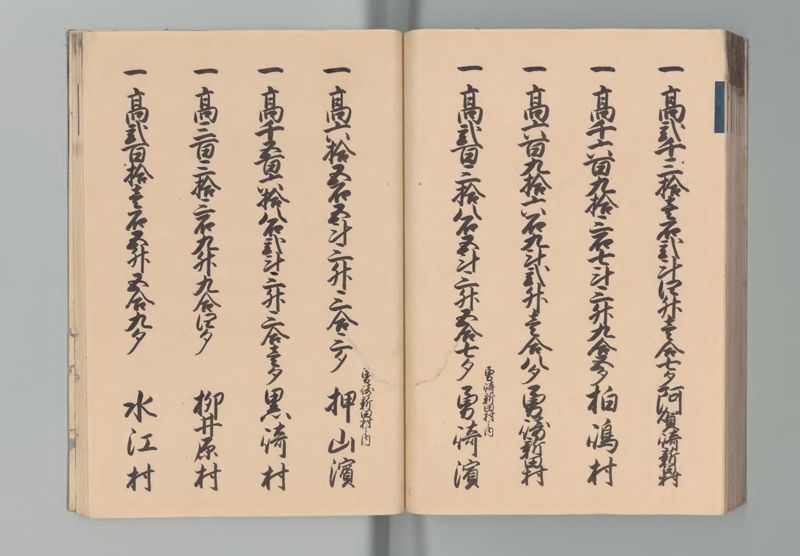 一高弐千三拾壱石弐斗四升壱合七夕阿賀崎新田村
一高千六百九拾三石七斗三升九合五夕柏嶋村
一高六百九拾六石九斗弐升壱合八夕勇崎新田村
勇崎新田村之内
一高弐百三拾八石五斗三升五合七夕勇崎濱
勇崎新田村之内
一高六拾五石五斗三升三合三夕押山濱
一高千五百六拾八石弐斗三升三合壱夕黒崎村
一高三百三拾三石九升九合四夕柳井原村
一高弐百拾壱石五升五合九夕水江村